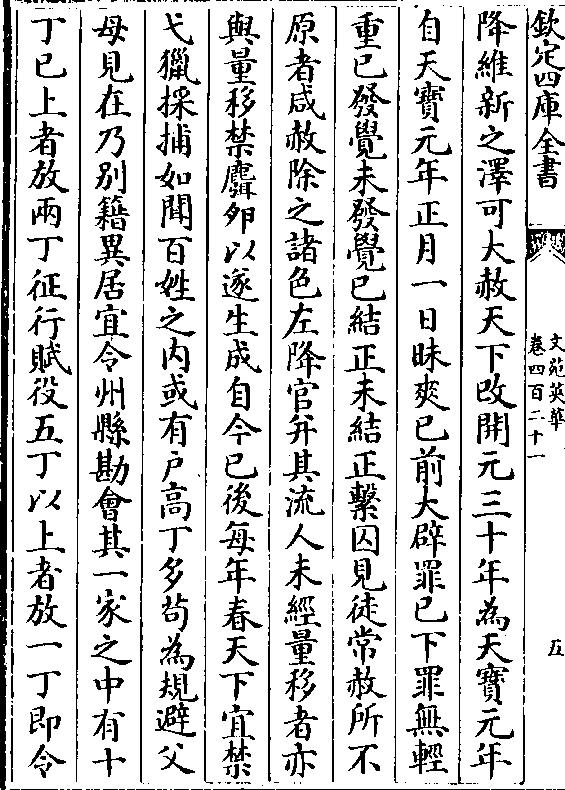 欽定四庫全書
文苑英華
卷四百二十一
五
降維新之澤可大赦天下改開元三十年為天寶元年
自天寶元年正月一日昧爽已前大辟罪已下罪無輕
重已發覺未發覺已結正未結正繫囚見徒常赦所不
原者咸赦除之諸色左降官并其流人未經量移者亦
與量移禁麛卵以遂生成自今已後每年春天下宜禁
弋獵採捕如聞百姓之内或有户高丁多茍為規避父
母見在乃别籍異居宜令州縣勘會其一家之中有十
丁已上者放兩丁征行賦役五丁以上者放一丁即令